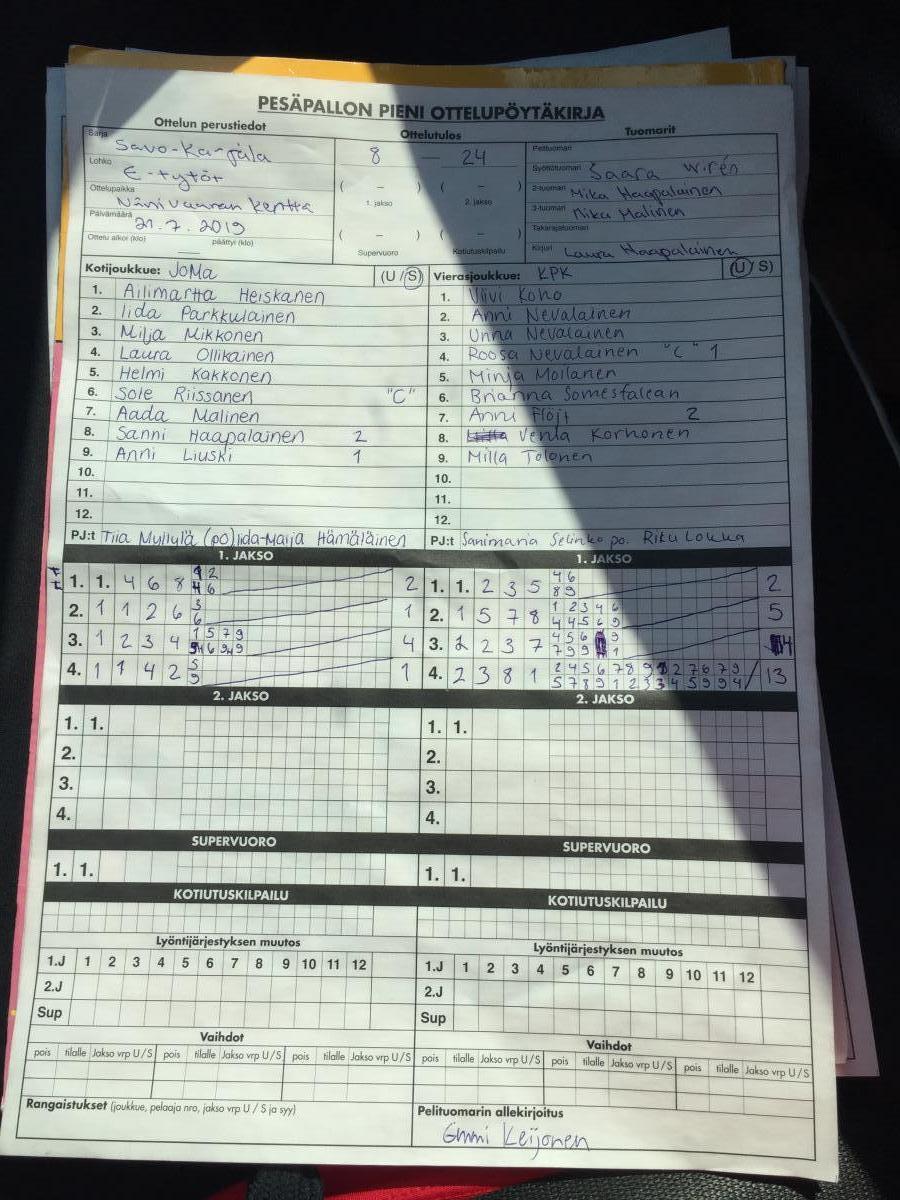 PESÄPALLON PIENI OTTELUPÖYTÄKIRJA
Ottelun perustiedot
Ottelutulos
Tuomarit
Sarja Savo-Karjala
Lohko E-tytöt
Ottelupaikka Niinivaaran kenttä
Päivämäärä 21.7.2019
Ottelu alkoi (klo) päättyi (klo)
8 — 24
( – ) ( – )
1. jakso 2. jakso
( – ) ( – )
Supervuoro Kotiutuskilpailu
Pelituomari
Syöttötuomari Saara Wirén
2-tuomari Mika Haapalainen
3-tuomari Mika Malinen
Takarajatuomari
Kirjuri Laura Haapalainen
Kotijoukkue: JoMa (U/S)
1. Ailimartta Heiskanen
2. Iida Parkkulainen
3. Milja Mikkonen
4. Laura Ollikainen
5. Helmi Kakkonen
6. Sole Riissanen "C"
7. Aada Malinen
8. Sanni Haapalainen 2
9. Anni Liuski 1
10.
11.
12.
PJ:t Tiia Myllylä (po) Iida-Maija Hämäläinen
Vierasjoukkue: KPK (U/S)
1. Viivi Koho
2. Anni Nevalainen
3. Unna Nevalainen
4. Roosa Nevalainen "C" 1
5. Minja Moilanen
6. Brianna Somesfalean
7. Anni Flöjt 2
8. Venla Korhonen
9. Milla Tolonen
10.
11.
12.
PJ:t Sanimaria Selinko po. Riku Loukka
1. JAKSO
1. 1. 4 6 8 2
2. 1 1 2 6 1
3. 1 2 3 4 4
4. 1 1 4 2 1
2. JAKSO
1. 1.
2.
3.
4.
SUPERVUORO
1. 1.
KOTIUTUSKILPAILU
Lyöntijärjestyksen muutos
1.J 1 2 3 4 5 6 7 8 9 10 11 12
2.J
Sup
Vaihdot
pois tilalle Jakso vrp U/S pois tilalle Jakso vrp U/S pois tilalle Jakso vrp U/S
Rangaistukset (joukkue, pelaaja nro, jakso vrp U / S ja syy)
1. JAKSO
1. 1. 2 3 5 4 6 8 9 2
2. 1 5 7 8 1 2 3 4 6 4 4 5 6 9 5
3. 2 2 3 7 4
4. 2 3 8 1 13
2. JAKSO
1. 1.
2.
3.
4.
SUPERVUORO
1. 1.
KOTIUTUSKILPAILU
Lyöntijärjestyksen muutos
1.J 1 2 3 4 5 6 7 8 9 10 11 12
2.J
Sup
Vaihdot
pois tilalle Jakso vrp U/S pois tilalle Jakso vrp U/S pois tilalle Jakso vrp U/S
Pelituomarin allekirjoitus
Emmi Keijonen